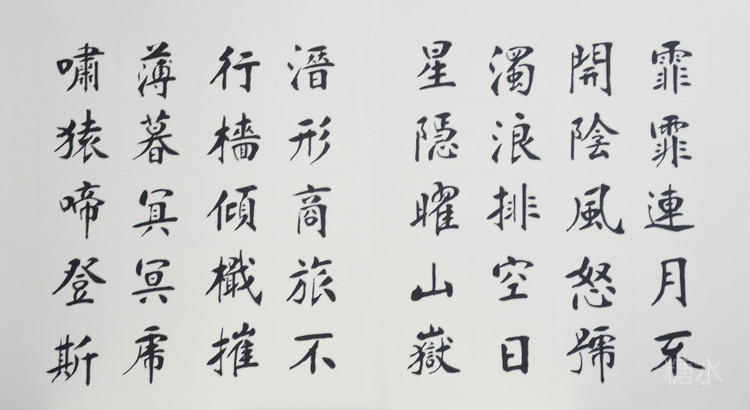 霏霏連月不
開陰風怒號
濁浪排空日
星隱曜山嶽
潛形商旅不
行檣傾檝摧
薄暮冥冥虎
嘯猿啼登斯
糖水